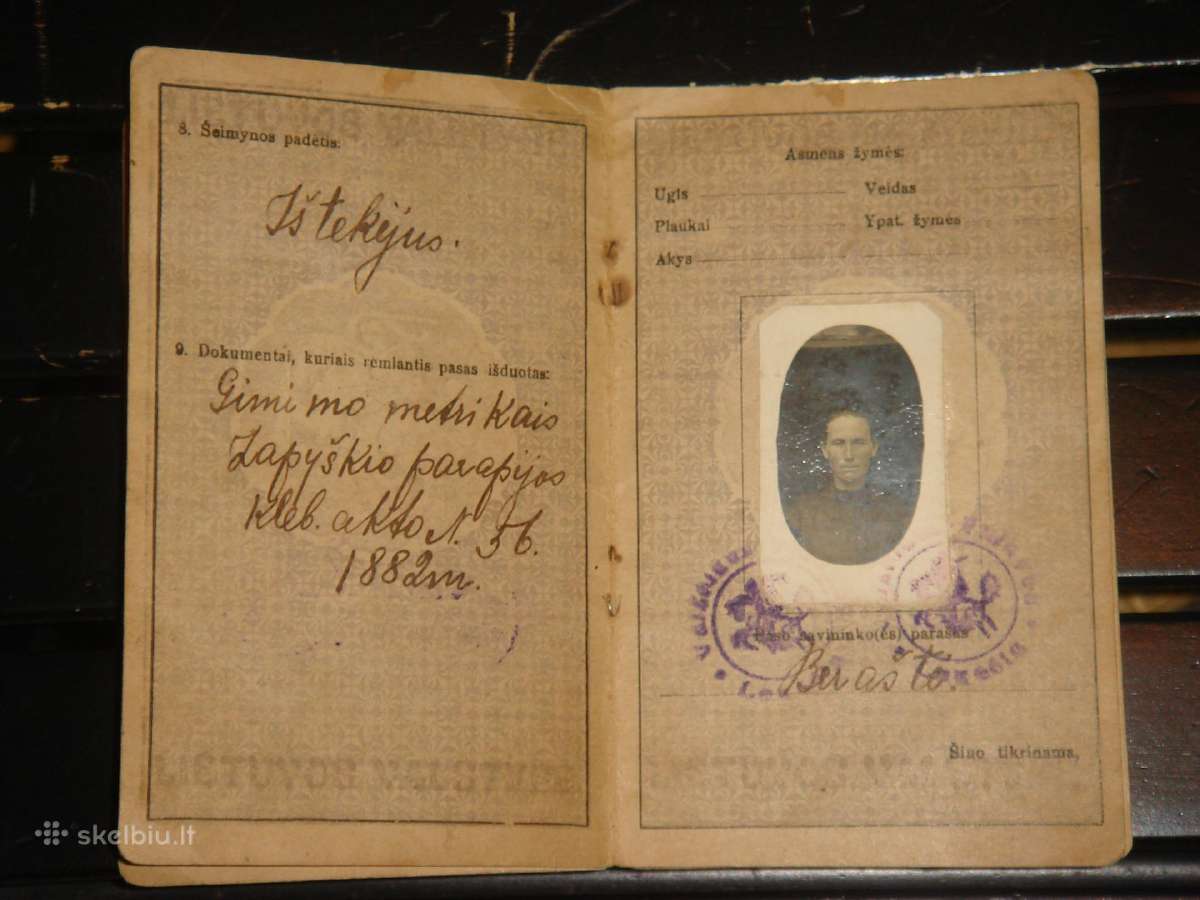 8. Šeimynos padėtis:
Ištekėjus.
9. Dokumentai, kuriais remiantis pasas išduotas:
Gimimo metrikais
Zapyškio parapijos
kleb. akto N. 56.
1882 m.
Asmens žymės:
Ugis
Veidas
Plaukai
Ypat. žymės
Akys
Paso savininko(ės) parašas
Beraštė.
Šiuo tikrinama,
skelbiu.lt